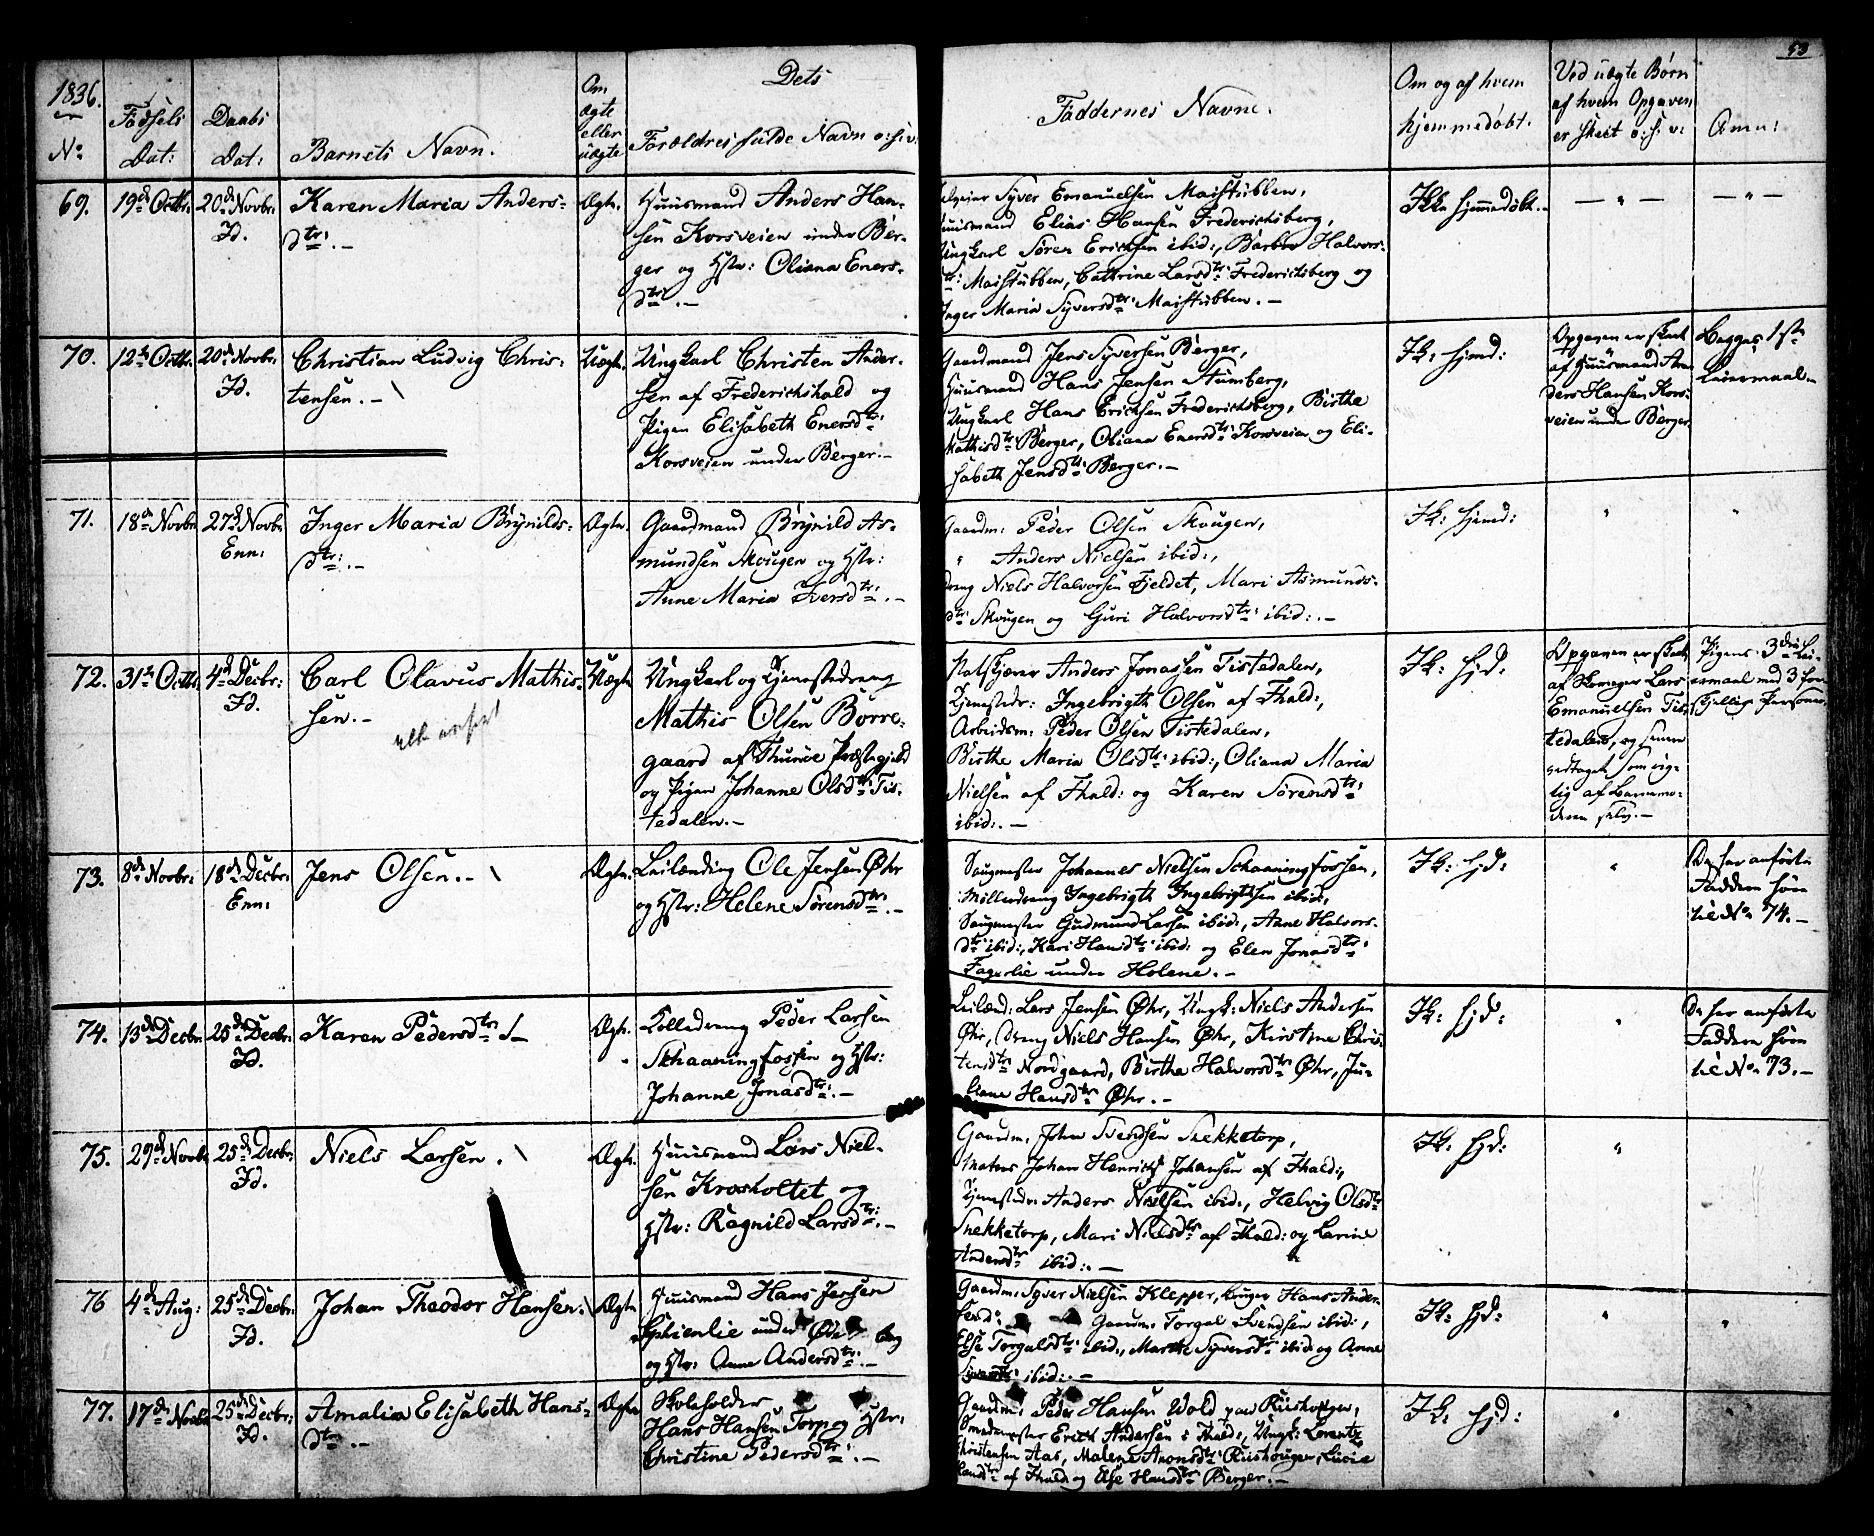 53
1836.
No
Fødsels
Dat:
Daabs
Dat:
Barnets Navn.
Om
ægte
eller
uægte
Dets
Forældres fulde Navn o: s: v:
Faddernes Navne.
Om og af hvem
hjemmedøbt.
Ved uægte Børn
af hvem Opgaven
er skeet o: s: v:
Anm:
69.
19de Octbr:
20de Novbr:
Id.
Karen Maria Anders-
dtr: -
Ægte.
Huusmand Anders Han-
sen Korsveien under Ber-
ger og Hstr: Oliana Eners-
dtr: -
Syver Emanuelsen Maistubben,
Huusmand Elias Hansen Frederichsberg,
Ungkarl Søren Ericksen ibid:, Barbro Halvors-
dtr: Maistubben, Cathrine Larsdtr: Frederichsberg og
Inger Maria Syversdtr: Maistubben. -
Ikke hjemmedøbt. -
— " —
— " —
70.
12te Octbr:
20de Novbr:
Id.
Christian Ludvig Chris-
tensen. -
Uægte.
Ungkarl Christen Ander-
sen af Frederichshald og
Pigen Elisabeth Enersdtr:
Korsveien under Berger. -
Gaardmand Jens Syversen Berger,
Huusmand Hans Jensen Stumberg,
Ungkarl Hans Ericksen Frederichsberg, Birthe
Mathisdtr: Berger, Oliana Enersdtr: Korsveien og Eli-
sabeth Jensdtr: Berger. -
Ik: hjemd:
Opgaven er skeet
af Huusmand An-
ders Hansen Kors-
veien under Berger.
Begges 1ste
Leiermaal. -
71.
18de Novbr:
27de Novbr:
Enn:
Inger Maria Brynilds-
dtr: -
Ægte.
Gaardmand Brynild As-
mundsen Skougen og Hstr:
Anne Maria Iversdtr: -
Gaardm: Peder Olsen Skougen,
" Anders Nielsen ibid:,
Dreng Niels Halvorsen Fjeldet, Mari Asmunds-
dtr: Skougen og Guri Halvorsdtr: ibid: -
Ik: hjemd:
"
"
72.
31te Octbr:
4de Decbr:
Id.
Carl Olavus Mathis-
sen. -
Uægte
Ungkarl og Tjenestedreng
Mathis Olsen Borre-
gaard af Thunøe Præstegjeld
og Pigen Johanne Olsdtr: Tis-
tedalen. -
Anders Jonassen Tistedalen,
Tjenestedr: Ingebrigth Olsen af Fhald:,
Arbeidsm: Peder Olsen Tistedalen,
Birthe Maria Olsdtr: ibid:, Oliana Maria
Nielsen af Fhald: og Karen Sørensdtr:
ibid: -
Ik: hjd:
Opgaven er skeet
af Skomager Lars
Emanuelsen Tis-
tedalen, og senere
vedtaget som rig-
tig af Barnemo-
deren selv. -
Pigens 3die Lei-
ermaal med 3 for-
skjellige Personer.
73.
8de Novbr:
18de Decbr:
Enn:
Jens Olsen. -
Ægte.
Leilænding Ole Jensen Øhr
og Hstr: Helene Sørensdtr: -
Saugmester Johannes Nielsen Schaaningfossen,
Mølledreng Ingebrigth Ingebrigthsen ibid:,
Saugmester Gudmund Larsen ibid:, Anne Halvors-
dtr: ibid:, Kari Hansdtr: ibid: og Elen Jonasdtr:
Fagerlie under Holene. -
Ik: hjd:
"
De her anførte
Faddere høre
til No 74. -
74.
13de Decbr:
25de Decbr:
Id.
Karen Pedersdtr: -
Ægte.
Tolledreng Peder Larsen
Schaaningfossen og Hstr:
Johanne Jonasdtr: -
Leilænd: Lars Jensen Øhr, Ungk: Niels Andersen
Øhr, Dreng Niels Hansen Øhr, Kirstine Chris-
tensdtr: Nordgaard, Birtha Halvorsdtr: Øhr, Ju-
liane Hansdtr: Øhr. -
Ik: hjd:
"
De her anførte
Faddere høre
til No 73. -
75.
29de Novbr:
25de Decbr:
Id.
Niels Larsen.
Ægte.
Huusmand Lars Niel-
sen Kroskoltet og
Hstr: Ragnild Larsdtr: -
Gaardm: John Svendsen Snekketorp,
Matros Johan Henrich Johansen af Fhald:,
Tjenestedr: Anders Nielsen ibid:, Helvig Olsdtr:
Snekketorp, Mari Nielsdtr: af Fhald: og Larine
Andersdtr: ibid: -
Ik: hjd:
"
76
4de Aug:
25de Decbr:
Id.
Johan Theodor Hansen.
Ægte
Huusmand Hans Jensen
under Øde og
og Hstr: Anne Andersdtr: -
Gaardm: Syver Nielsen Klepper, Hans Ander-
sen
Gaardm: Torgal Svendsen ibid:,
Else Torgalsdtr: ibid:, Marthe Syversdtr: ibid: og Anne
ibid: -
Ik: hjd:
"
"
77.
17de Novbr:
25de Decbr:
Id.
Amalia Elisabeth Hans-
dtr: -
Ægte
Skoleholder
Hans Hansen Torp og Hstr:
Christine Pedersdtr: -
Gaardm: Peder Hansen Wold paa
Smedemester Erick Andersen i Fhald:, Ungk: Lorentz
Christensen Aas, Malene
af Fhald: og Else Hansdtr: Berger. -
Ik: hjd:
"